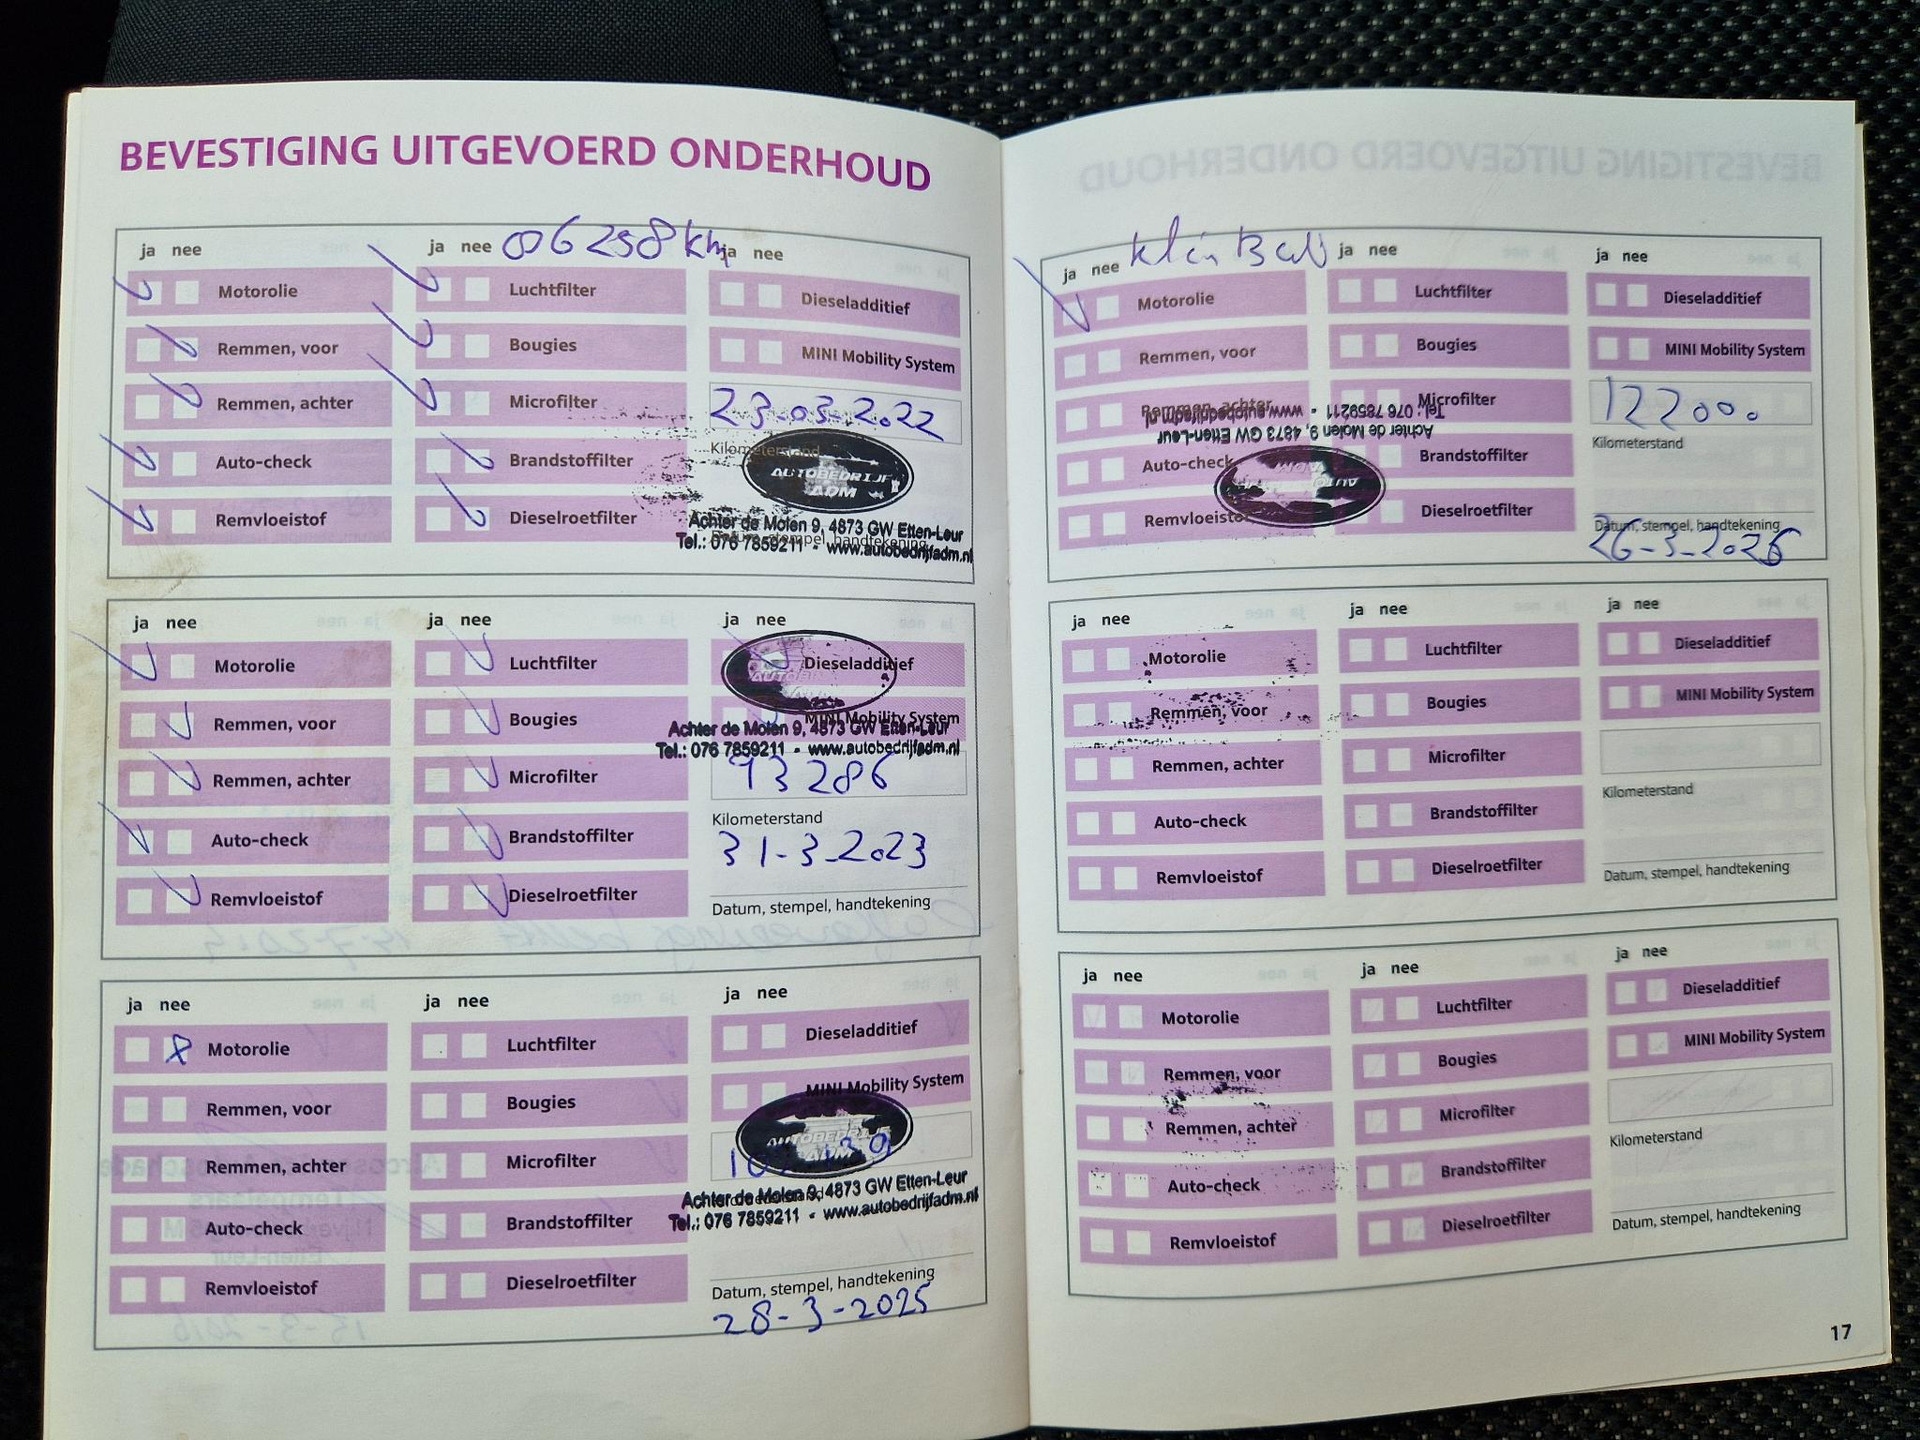 BEVESTIGING UITGEVOERD ONDERHOUD
ja nee
Motorolie
Remmen, voor
Remmen, achter
Auto-check
Remvloeistof
ja nee 006258 km
Luchtfilter
Bougies
Microfilter
Brandstoffilter
Dieselroetfilter
ja nee
Dieseladditief
MINI Mobility System
23-03-2022
Kilometerstand
AUTOBEDRIJF
ADM
Achter de Molen 9, 4873 GW Etten-Leur
Datum, stempel, handtekening
Tel.: 076 7859211 - www.autobedrijfadm.nl
ja nee
Motorolie
Remmen, voor
Remmen, achter
Auto-check
Remvloeistof
ja nee
Luchtfilter
Bougies
Microfilter
Brandstoffilter
Dieselroetfilter
ja nee
Dieseladditief
MINI Mobility System
Achter de Molen 9, 4873 GW Etten-Leur
Tel.: 076 7859211 - www.autobedrijfadm.nl
93286
Kilometerstand
31-3-2023
Datum, stempel, handtekening
ja nee
Motorolie
Remmen, voor
Remmen, achter
Auto-check
Remvloeistof
ja nee
Luchtfilter
Bougies
Microfilter
Brandstoffilter
Dieselroetfilter
ja nee
Dieseladditief
MINI Mobility System
AUTOBEDRIJF
Achter de Molen 9, 4873 GW Etten-Leur
Tel.: 076 7859211 - www.autobedrijfadm.nl
Datum, stempel, handtekening
28-3-2025
ja nee
Motorolie
Remmen, voor
Remmen, achter
Auto-check
Remvloeistof
ja nee
Luchtfilter
Bougies
Microfilter
Brandstoffilter
Dieselroetfilter
Tel.: 076 7859211 - www.autobedrijfadm.nl
Achter de Molen 9, 4873 GW Etten-Leur
ja nee
Dieseladditief
MINI Mobility System
122000
Kilometerstand
Datum, stempel, handtekening
26-3-2026
ja nee
Motorolie
Remmen, voor
Remmen, achter
Auto-check
Remvloeistof
ja nee
Luchtfilter
Bougies
Microfilter
Brandstoffilter
Dieselroetfilter
ja nee
Dieseladditief
MINI Mobility System
Kilometerstand
Datum, stempel, handtekening
ja nee
Motorolie
Remmen, voor
Remmen, achter
Auto-check
Remvloeistof
ja nee
Luchtfilter
Bougies
Microfilter
Brandstoffilter
Dieselroetfilter
ja nee
Dieseladditief
MINI Mobility System
Kilometerstand
Datum, stempel, handtekening
17